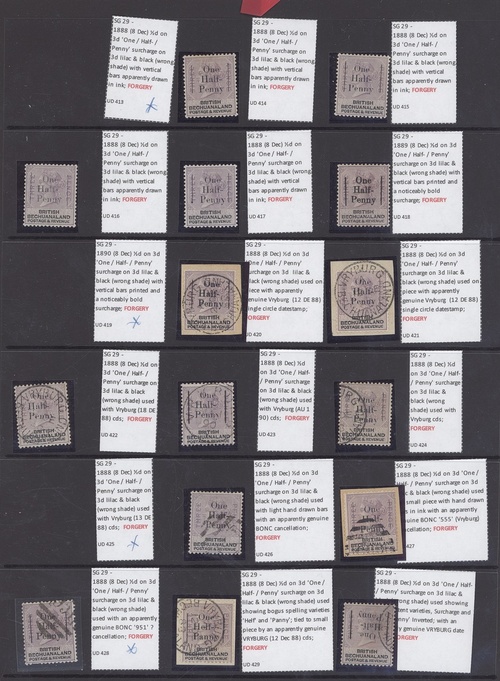 SG 29 -
1888 (8 Dec) ½d on
3d 'One / Half- /
Penny' surcharge on
3d lilac & black (wrong
shade) with vertical
bars apparently drawn
in ink; FORGERY
UD 413
One
Half-
Penny
BRITISH
BECHUANALAND
POSTAGE & REVENUE
SG 29 -
1888 (8 Dec) ½d on
3d 'One / Half- /
Penny' surcharge on
3d lilac & black (wrong
shade) with vertical
bars apparently drawn
in ink; FORGERY
UD 414
One
Half-
Penny
BRITISH
BECHUANALAND
POSTAGE & REVENUE
SG 29 -
1888 (8 Dec) ½d on
3d 'One / Half- /
Penny' surcharge on
3d lilac & black (wrong
shade) with vertical
bars apparently drawn
in ink; FORGERY
UD 415
One
Half-
Penny
BRITISH
BECHUANALAND
POSTAGE & REVENUE
SG 29 -
1888 (8 Dec) ½d on
3d 'One / Half- /
Penny' surcharge on
3d lilac & black (wrong
shade) with vertical
bars apparently drawn
in ink; FORGERY
UD 416
One
Half-
Penny
BRITISH
BECHUANALAND
POSTAGE & REVENUE
SG 29 -
1888 (8 Dec) ½d on
3d 'One / Half- /
Penny' surcharge on
3d lilac & black (wrong
shade) with vertical
bars apparently drawn
in ink; FORGERY
UD 417
One
Half-
Penny
BRITISH
BECHUANALAND
POSTAGE & REVENUE
SG 29 -
1888 (8 Dec) ½d on
3d 'One / Half- /
Penny' surcharge on
3d lilac & black (wrong
shade) with vertical
bars printed and
a noticeably bold
surcharge; FORGERY
UD 418
SG 29 -
1890 (8 Dec) ½d on 3d
'One / Half- / Penny'
surcharge on 3d lilac
& black (wrong shade)
with vertical bars
printed and a
noticeably bold
surcharge; FORGERY
UD 419
One
Half-
Penny
BRITISH
BECHUANALAND
POSTAGE & REVENUE
SG 29 -
1888 (8 Dec) ½d on
3d 'One / Half- / Penny'
surcharge on 3d lilac &
black (wrong shade)
used on piece with
apparently genuine
Vryburg (12 DE 88)
single circle datestamp;
FORGERY
UD 420
VRYBURG
Half-
Penny
BECHUANALAND
POSTAGE & REVENUE
SG 29 -
1888 (8 Dec) ½d on 3d
'One / Half- / Penny'
surcharge on 3d lilac &
black (wrong shade)
used on piece with
apparently genuine
Vryburg (12 DE 88)
single circle datestamp;
FORGERY
UD 421
One
Half-
Penny
BRITISH
BECHUANALAND
POSTAGE & REVENUE
SG 29 -
1888 (8 Dec) ½d on
3d 'One / Half- /
Penny' surcharge on
3d lilac & black
(wrong shade) used
with Vryburg (18 DE
88) cds; FORGERY
UD 422
One
Half-
Penny
BRITISH
BECHUANALAND
POSTAGE & REVENUE
SG 29 -
1888 (8 Dec) ½d on
3d 'One / Half- /
Penny' surcharge on
3d lilac & black
(wrong shade) used
with Vryburg (AU 1
90) cds; FORGERY
UD 423
One
Half-
Penny
BRITISH
BECHUANALAND
POSTAGE & REVENUE
SG 29 -
1888 (8 Dec) ½d on
3d 'One / Half- /
Penny' surcharge on
3d lilac & black
(wrong shade) used
with Vryburg cds;
FORGERY
UD 424
SG 29 -
1888 (8 Dec) ½d on
3d 'One / Half- /
Penny' surcharge on
3d lilac & black
(wrong shade) used
with Vryburg (13 DE
88) cds; FORGERY
UD 425
One
Half-
Penny
BRITISH
BECHUANALAND
POSTAGE & REVENUE
SG 29 -
1888 (8 Dec) ½d on
3d 'One / Half- /
Penny' surcharge on
3d lilac & black
(wrong shade) used
with light hand drawn bars
with an apparently genuine
BONC cancellation;
FORGERY
UD 426
One
SG 29 -
1888 (8 Dec) ½d on 3d
One / Half- / Penny'
surcharge on 3d lilac &
black (wrong shade) used
small piece with hand drawn
in ink with an apparently
genuine BONC '555' (Vryburg)
cancellation; FORGERY
One
Half-
Penny
BRITISH
BECHUANALAND
POSTAGE & REVENUE
SG 29 -
1888 (8 Dec) ½d on 3d
'One / Half- / Penny'
surcharge on 3d lilac &
black (wrong shade)
used with an apparently
genuine BONC '951' ?
cancellation; FORGERY
UD 428
One
Half-
Penny
BRITISH
BECHUANALAND
POSTAGE & REVENUE
SG 29 -
1888 (8 Dec) ½d on 3d 'One /
Half- / Penny' surcharge on 3d
lilac & black (wrong shade) used
showing bogus spelling varieties
'Helf' and 'Panny'; tied to small
piece by an apparently genuine
VRYBURG (12 Dec 88) cds;
FORGERY
UD 429
Penny
SG 29 -
1888 (8 Dec) ½d on 3d 'One /
Half- / Penny' surcharge on 3d
lilac & black (wrong shade)
used showing
varieties, Surcharge and
'Penny' Inverted; with an
genuine VRYBURG date
FORGERY